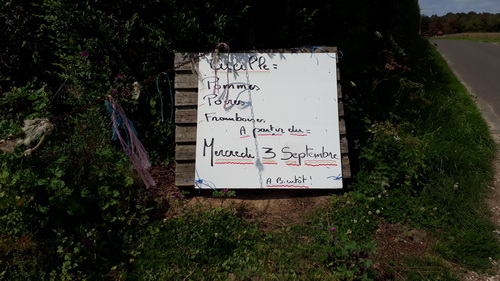 Cueillette =
Pommes
Poires
Framboises
A partir du =
Mercredi 3 Septembre
A Bientôt !